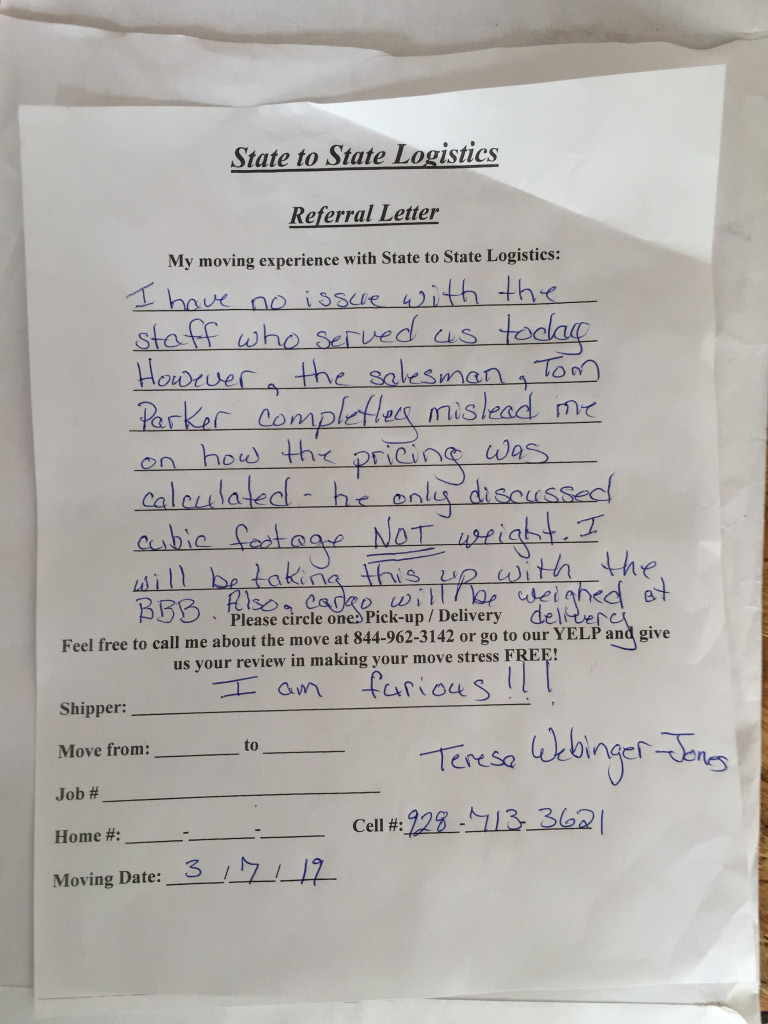 State to State Logistics
Referral Letter
My moving experience with State to State Logistics:
I have no issue with the
staff who served us today
However, the salesman, Tom
Parker completley mislead me
on how the pricing was
calculated - he only discussed
cubic footage NOT weight. I
will be taking this up with the
BBB. Also, cargo will be weighed at
Please circle one: Pick-up / Delivery delivery
Feel free to call me about the move at 844-962-3142 or go to our YELP and give
us your review in making your move stress FREE!
I am furious!!!
Shipper:
Move from: to
Teresa Webinger-Jones
Job #
Home #: - - Cell #: 928-713-3621
Moving Date: 3 / 7 / 19